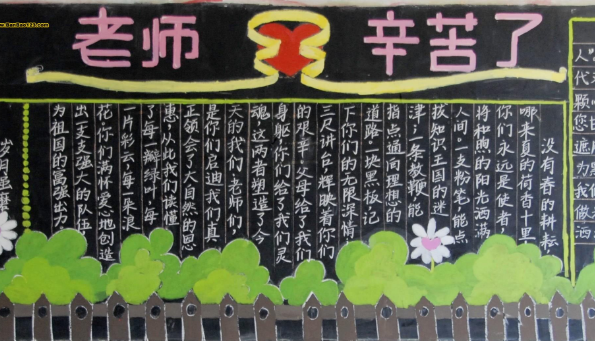 www.BanBao123.com
老师 辛苦了
没有春的耕耘
哪来夏的荷香十里
你们永远是使者,
将和煦的阳光洒满
人间。一支粉笔,能点
拨知识王国的迷
津;一条教鞭,能
指点通向理想的
道路。一块黑板,记
下你们的无限深情
三尺讲台,辉映着你们
的艰辛。父母给了我们
身躯,你们给了我们灵
魂,这两者塑造了今
天的我们。老师们,
是你们启迪我们真
正领会了大自然的恩
惠,从此我们读懂
了每一瓣绿叶,每
一片彩云,每一朵浪
花。你们满怀爱心地创造
出一支支强大的队伍
为祖国的富强出力
岁月
人
代
颗
您
遍
为
我
做
洒